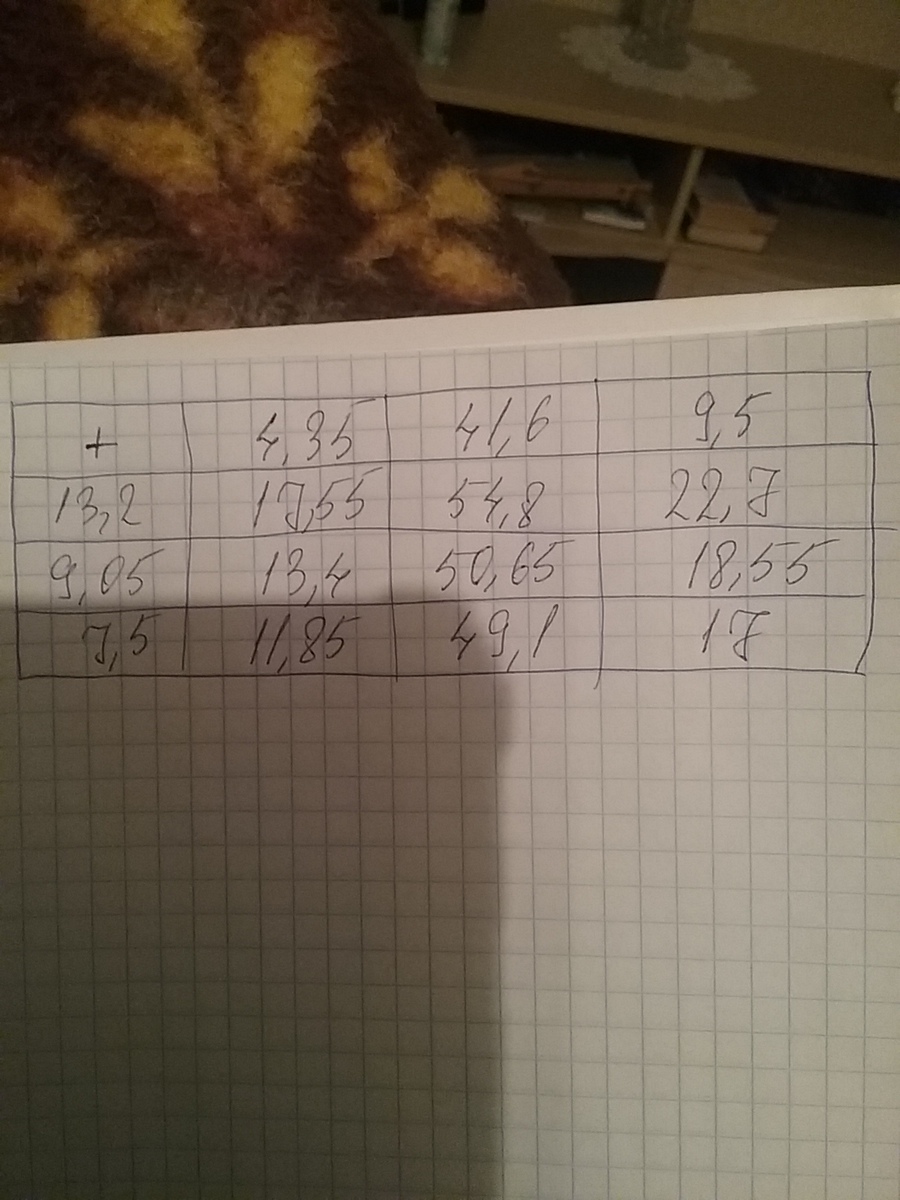 + 4,35 41,6 9,5
13,2 17,55 54,8 22,7
9,05 13,4 50,65 18,55
7,5 11,85 49,1 17